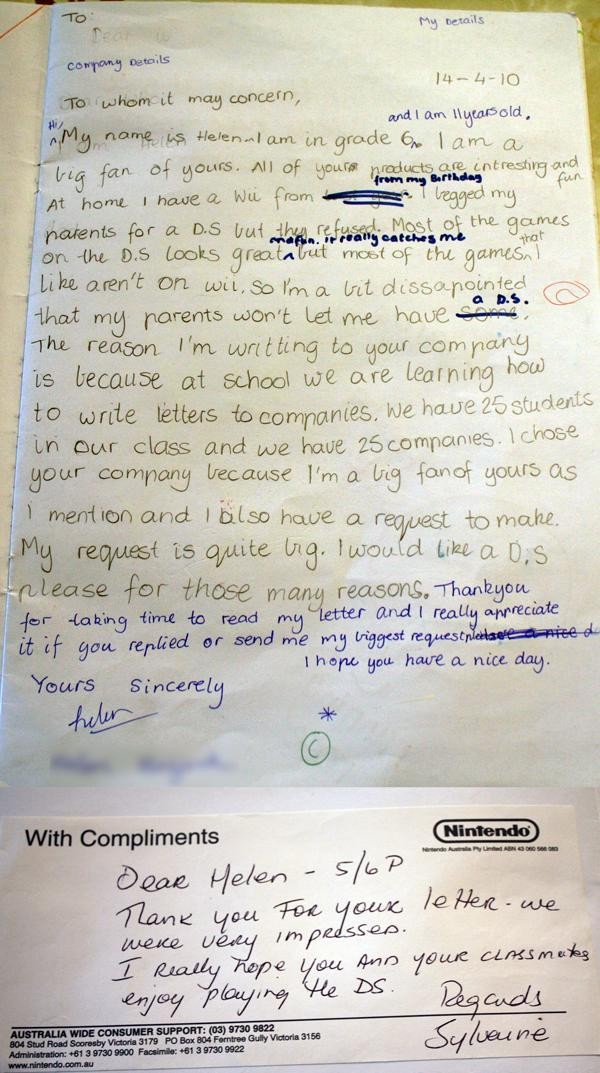 To:
My Details
Dear
Company Details
14-4-10
To whom it may concern,
and I am 11 years old.
Hi, My name is Helen. I am in grade 6. I am a
big fan of yours. All of yours products are intresting and
fun
from my Birthday
At home I have a Wii from I begged my
parents for a D.S but they refused. Most of the games
it really catches me
on the D.S looks great but most of the games that I
like aren't on wii. So I'm a bit dissapointed
a D.S.
that my parents won't let me have some.
The reason I'm writting to your company
is because at school we are learning how
to write letters to companies. We have 25 students
in our class and we have 25 companies. I chose
your company because I'm a big fan of yours as
I mention and I also have a request to make.
My request is quite big. I would like a D.S
please for those many reasons. Thankyou
for taking time to read my letter and I really appreciate
it if you replied or send me my biggest request please have a nice d
I hope you have a nice day.
Yours Sincerely
helen
*
C
With Compliments
Nintendo
Nintendo Australia Pty Limited ABN 43 060 566 083
Dear Helen - 5/6P
Thank you For your letter - we
were very impressed.
I Really hope you And your classmates
enjoy playing the DS.
Regards
Sylvaine
AUSTRALIA WIDE CONSUMER SUPPORT: (03) 9730 9822
804 Stud Road Scoresby Victoria 3179 PO Box 804 Ferntree Gully Victoria 3156
Administration: +61 3 9730 9900 Facsimile: +61 3 9730 9922
www.nintendo.com.au